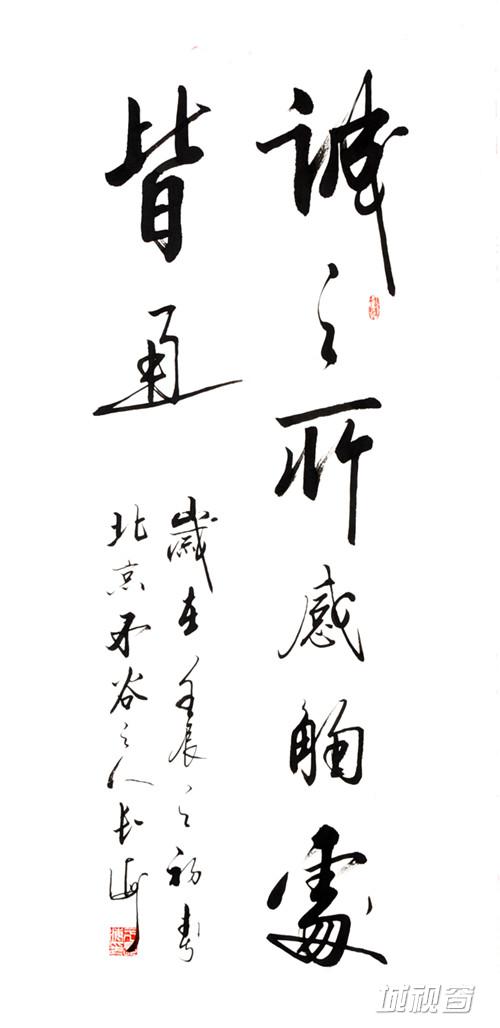 誠之所感觸處
皆通
歲在壬辰之初春
北京不谷之人長海
城视窗